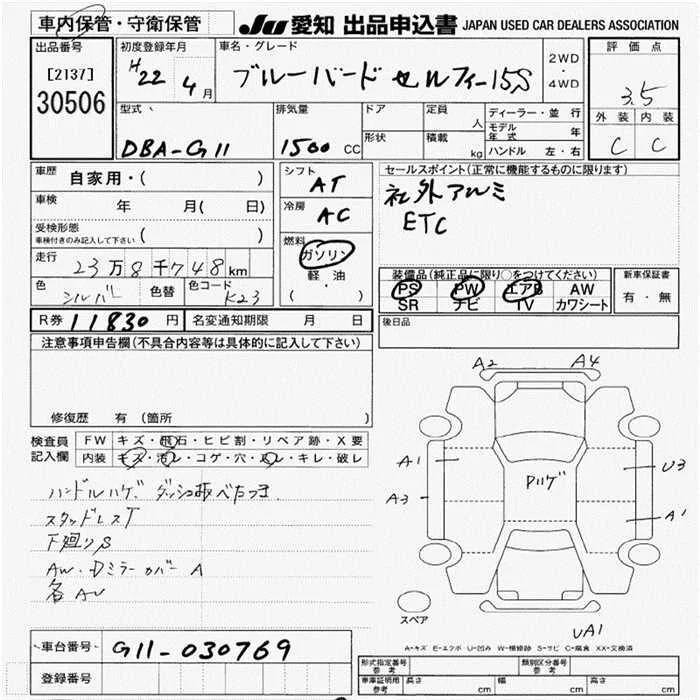 車内保管・守衛保管
JU 愛知 出品申込書 JAPAN USED CAR DEALERS ASSOCIATION
出品番号
[2137]
30506
初度登録年月
H22 4月
車名・グレード
ブルーバード セルフィー15S
2WD
・
4WD
評価点
3.5
外装 内装
C C
型式
DBA-G11
排気量
1500 CC
ドア
形状
定員
人
積載
kg
ディーラー・並行
モデル年式 年
ハンドル 左・右
車歴
自家用・( )
車検 年 月( 日)
受検形態
車検付きのみ記入して下さい ( )
走行
23万8千748km
色
シルバー
色替
色コード
K23
シフト
AT
冷房
AC
燃料
ガソリン
・
軽油
( ・ )
セールスポイント(正常に機能するものに限ります)
社外アルミ
ETC
装備品(純正品に限り○をつけてください)
PS PW エアB AW
SR ナビ TV カワシート
新車保証書
有・無
R券 11830円 名変通知期限 月 日
後日品
注意事項申告欄(不具合内容等は具体的に記入して下さい)
修復歴 有 (箇所 )
検査員
記入欄
FW キズ・飛石・ヒビ割・リペア跡・X要
内装 キズ・汚レ・コゲ・穴・スレ・キレ・破レ
ハンドルハゲ ダッシュ板べたつき
スタッドレスT
下廻りS
AW・Dミラーカバー A
各AU
A2 A4
A1
A3
Pハゲ
U3
A1
スペア
UA1
A-キズ E-エクボ U-凹み W-補修跡 S-サビ C-腐食 XX-交換済
車台番号
G11-030769
登録番号
形式指定番号
参考
類別区分番号
参考
車庫証明用
参考
長さ cm 幅 cm 高さ cm